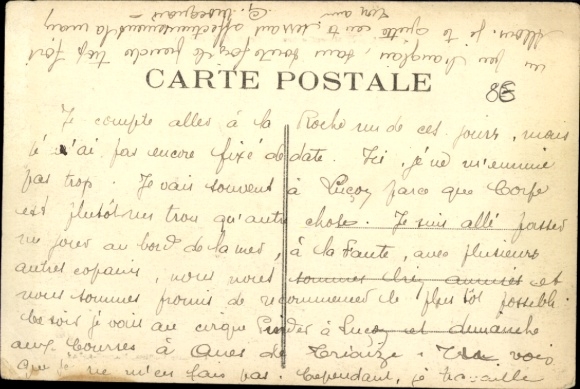 CARTE POSTALE
Je compte aller à la Roche un de ces jours, mais
je n'ai pas encore fixé de date. Ici, je ne m'ennuie
pas trop. Je vais souvent à Luçon parce que Corpe
est plutôt un trou qu'autre chose. Je suis allé passer
un jour au bord de la mer, à la Faute, avec plusieurs
autres copains, nous nous sommes bien amusés et
nous sommes promis de recommencer le plus tôt possible.
Ce soir je vais au cirque Pinder à Luçon et dimanche
aux Courses à de Triaize. Tu vois
que je ne m'en fais pas. Cependant, je travaille
un peu l'anglais, sans toutefois le très fort
Allons, je te quitte en te serrant affectueusement la main
Ton ami
G.